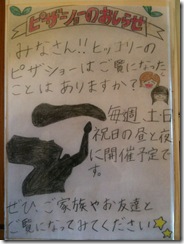 ピザショーのおしらせ
みなさん!!ヒッコリーの
ピザショーはご覧になった
ことはありますか?
毎週 土日
祝日の昼と夜
に開催予定で
す。
ぜひご家族やお友達と
ご覧になってみてください